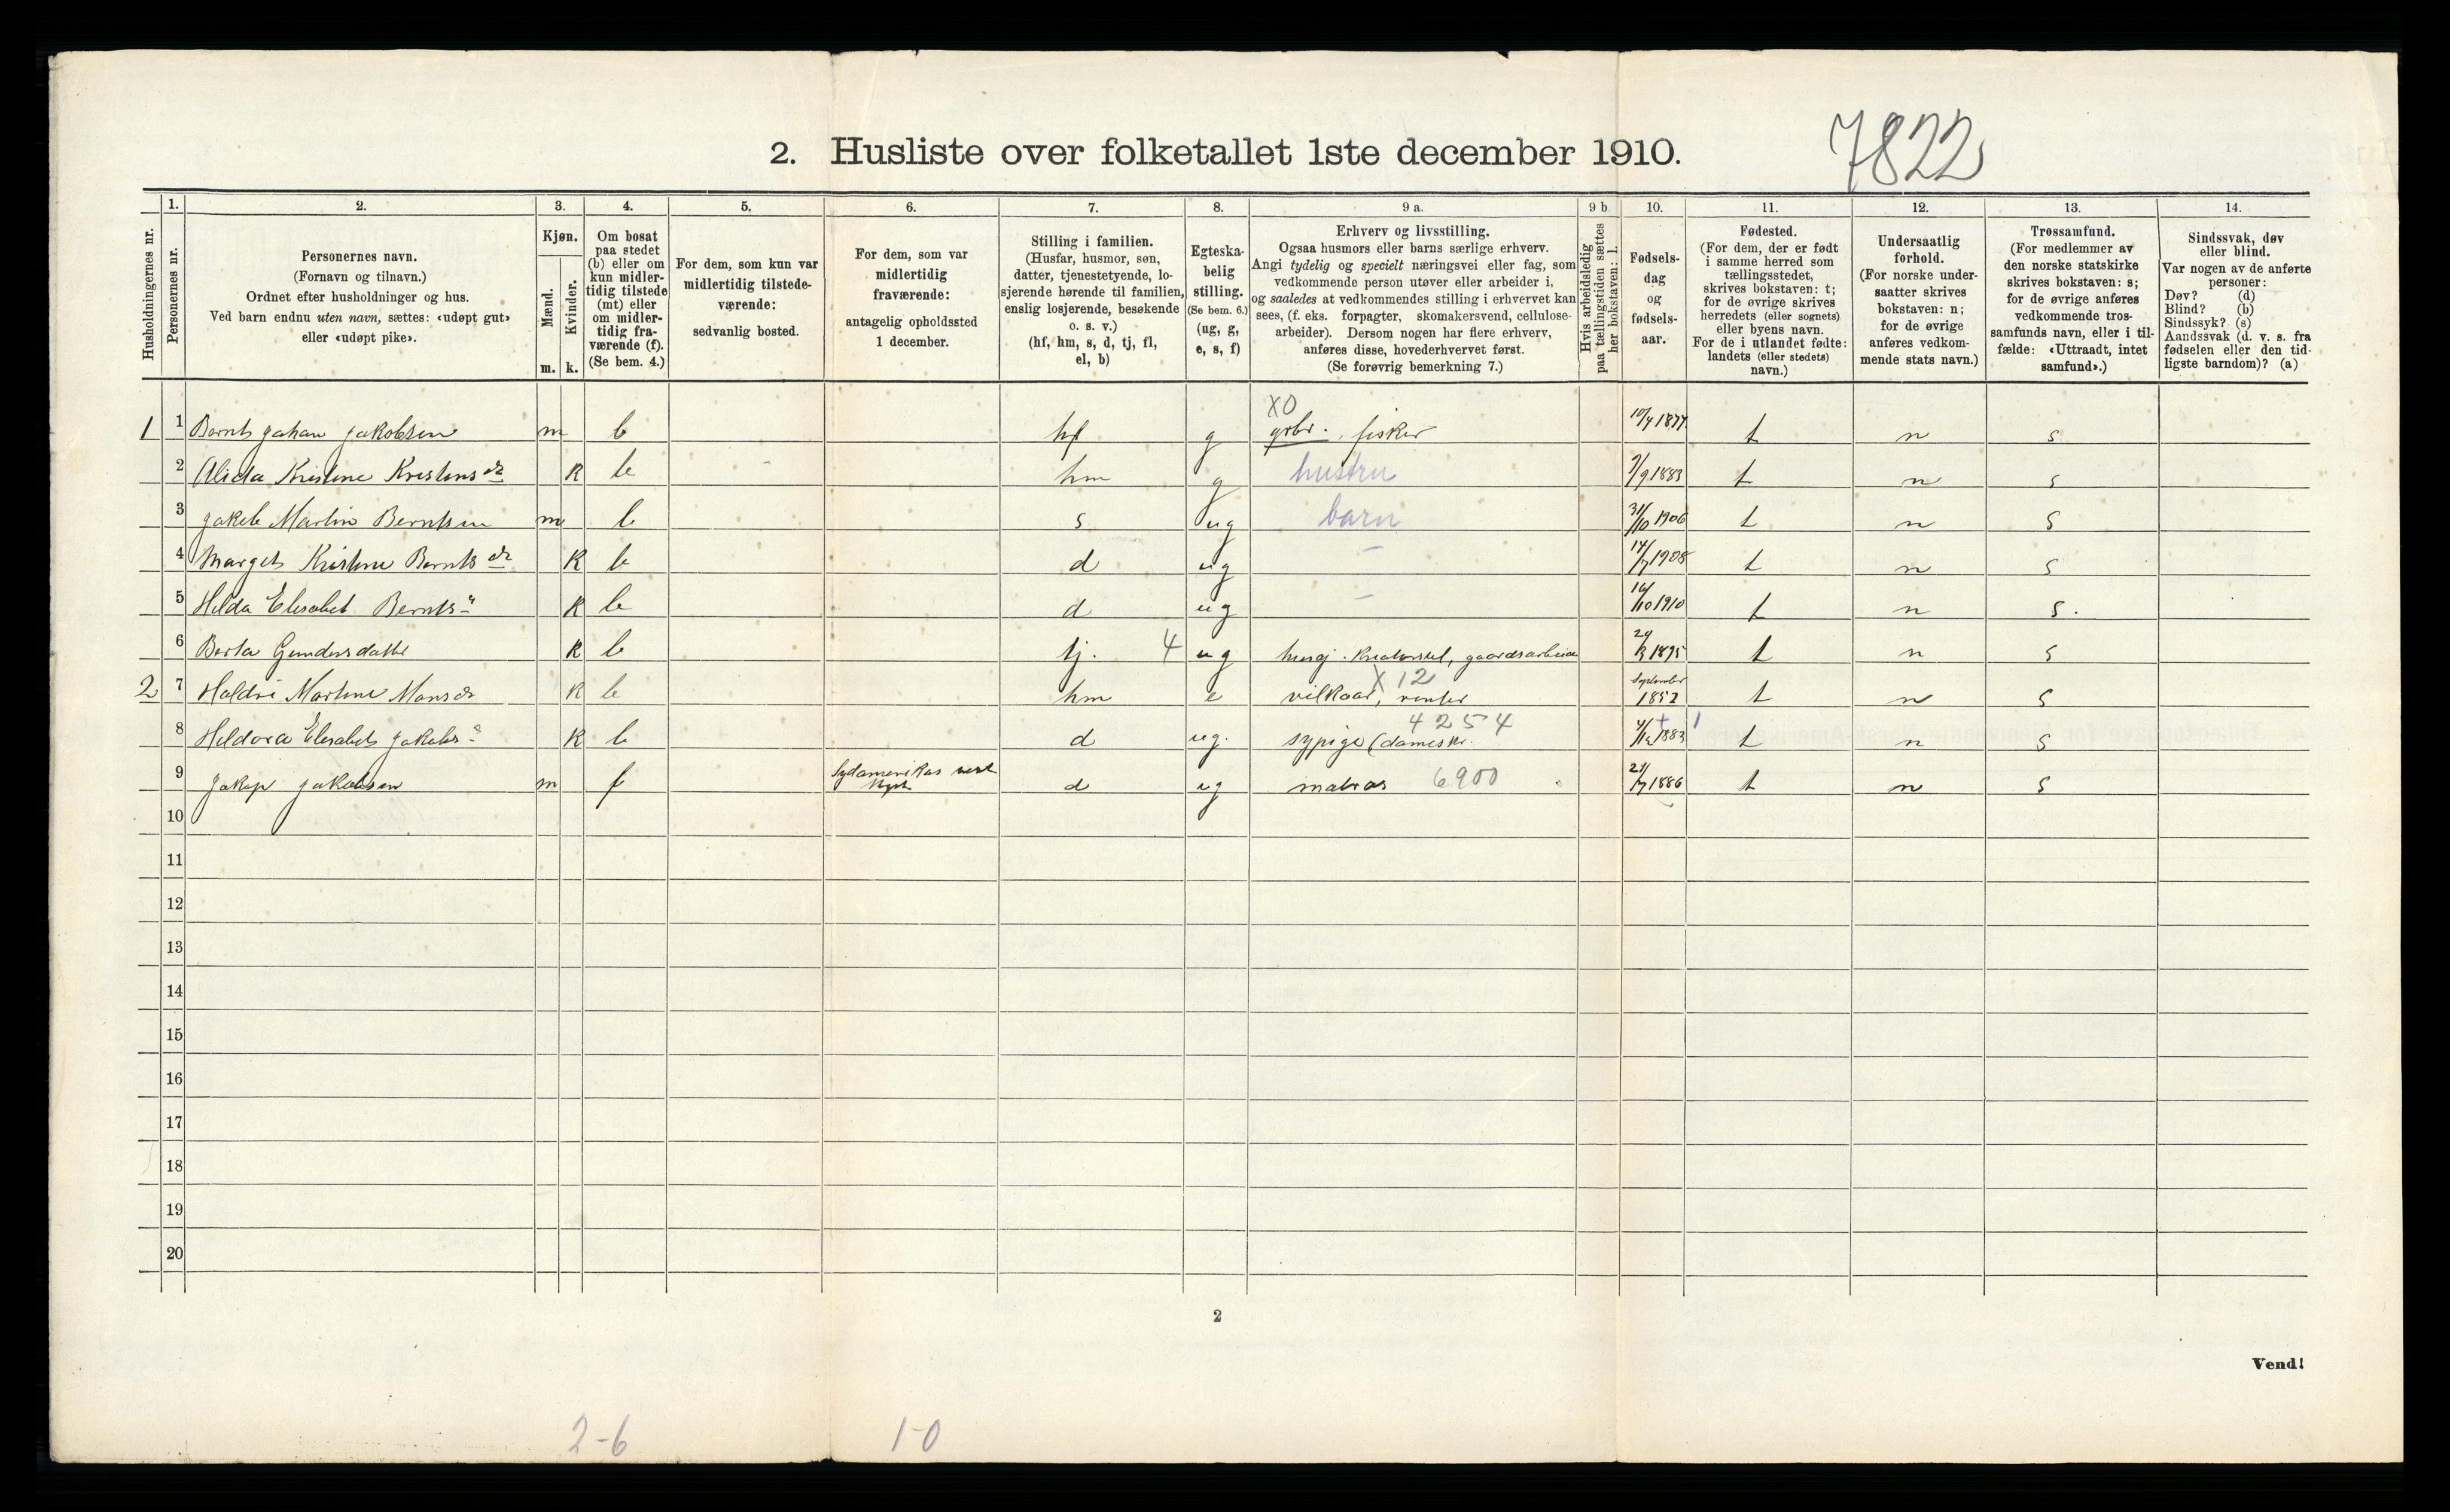 2. Husliste over folketallet 1ste december 1910.
7822
Husholdningernes nr.
1.
Personernes nr.
2.
Personernes navn.
(Fornavn og tilnavn.)
Ordnet efter husholdninger og hus.
Ved barn endnu uten navn, sættes: «udøpt gut»
eller «udøpt pike».
3.
Kjøn.
Mænd.
Kvinder.
m. k.
4.
Om bosat
paa stedet
(b) eller om
kun midler-
tidig tilstede
(mt) eller
om midler-
tidig fra-
værende (f).
(Se bem. 4.)
5.
For dem, som kun var
midlertidig tilstede-
værende:
sedvanlig bosted.
6.
For dem, som var
midlertidig
fraværende:
antagelig opholdssted
1 december.
7.
Stilling i familien.
(Husfar, husmor, søn,
datter, tjenestetyende, lo-
sjerende hørende til familien,
enslig losjerende, besøkende
o. s. v.)
(hf, hm, s, d, tj, fl,
el, b)
8.
Egteska-
belig
stilling.
(Se bem. 6.)
(ug, g,
e, s, f)
9 a.
Erhverv og livsstilling.
Ogsaa husmors eller barns særlige erhverv.
Angi tydelig og specielt næringsvei eller fag, som
vedkommende person utøver eller arbeider i,
og saaledes at vedkommendes stilling i erhvervet kan
sees, (f. eks. forpagter, skomakersvend, cellulose-
arbeider). Dersom nogen har flere erhverv,
anføres disse, hovederhvervet først.
(Se forøvrig bemerkning 7.)
9 b
Hvis arbeidsledig
paa tællingstiden sættes
her bokstaven: l.
10.
Fødsels-
dag
og
fødsels-
aar.
11.
Fødested.
(For dem, der er født
i samme herred som
tællingsstedet,
skrives bokstaven: t;
for de øvrige skrives
herredets (eller sognets)
eller byens navn.
For de i utlandet fødte:
landets (eller stedets)
navn.)
12.
Undersaatlig
forhold.
(For norske under-
saatter skrives
bokstaven: n;
for de øvrige
anføres vedkom-
mende stats navn.)
13.
Trossamfund.
(For medlemmer av
den norske statskirke
skrives bokstaven: s;
for de øvrige anføres
vedkommende tros-
samfunds navn, eller i til-
fælde: «Uttraadt, intet
samfund».)
14.
Sindssvak, døv
eller blind.
Var nogen av de anførte
personer:
Døv? (d)
Blind? (b)
Sindssyk? (s)
Aandssvak (d. v. s. fra
fødselen eller den tid-
ligste barndom)? (a)
XO
1 1 Bernt Johan Jakobsen m b hf g grbr. fisker 10/4 1877 t n s
2 Alida Kristine Kristensdr k b hm g hustru 7/9 1883 t n s
3 Jakob Martin Berntsen m b s ug barn 31/10 1906 t n s
4 Marget Kristine Berntsdr k b d ug – 14/7 1908 t n s
5 Hilda Elisabet Bernts " k b d ug – 16/10 1910 t n s.
6 Berta Gundersdatter k b tj. 4 ug husgj. kreaturstel, gaardsarbeide 1895 t n s
X 12
2 7 Martine Monsdr k b hm e vilkaar, september 1852 t n s
4254
8 Heldora Elisabet Jakobs " k b d ug. sypige (damesk. 1883 t n s
9 Jakop Jakobsen m f Sydamerikas vest kyst d ug matros 6900 1886 t n s
10
11
12
13
14
15
16
17
18
19
20
2
Vend!
2-6 1-0